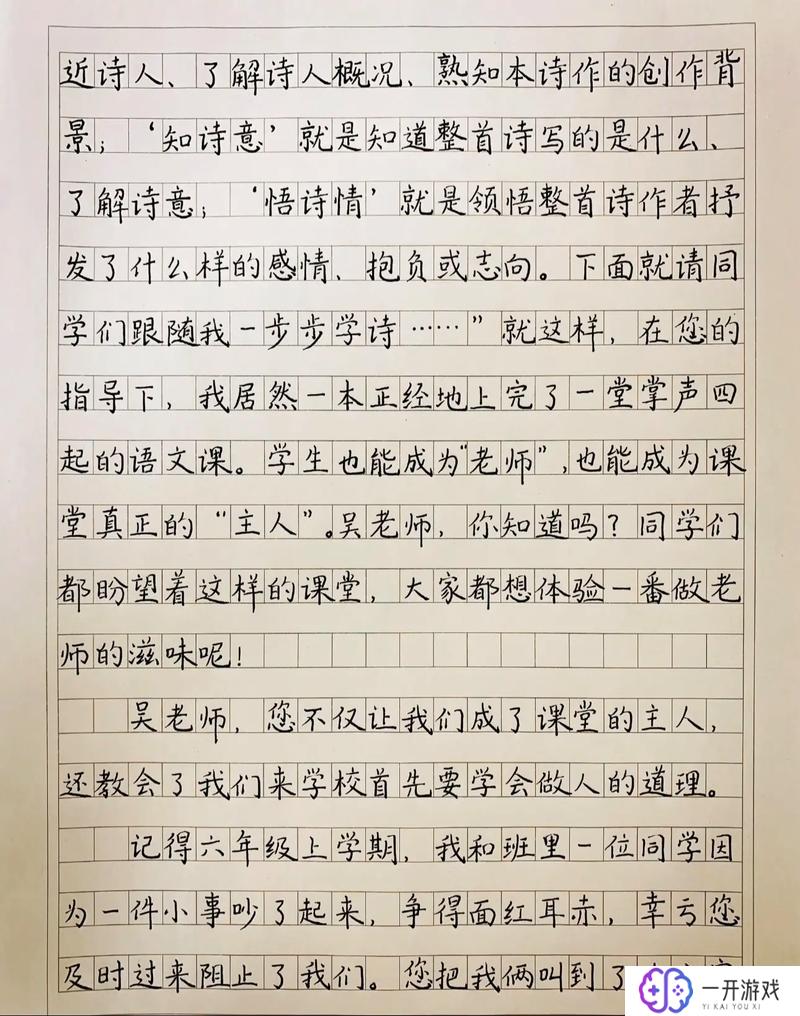 近诗人、了解诗人概况、熟知本诗作的创作背
景；‘知诗意’就是知道整首诗写的是什么、
了解诗意；‘悟诗情’就是领悟整首诗作者抒
发了什么样的感情、抱负或志向。下面就请同
学们跟随我一步步学诗……”就这样，在您的
指导下，我居然一本正经地上完了一堂掌声四
起的语文课。学生也能成为“老师”，也能成为课
堂真正的“主人”。吴老师，你知道吗？同学们
都盼望着这样的课堂，大家都想体验一番做老
师的滋味呢！
吴老师，您不仅让我们成了课堂的主人，
还教会了我们来学校首先要学会做人的道理。
记得六年级上学期，我和班里一位同学因
为一件小事吵了起来，争得面红耳赤，幸亏您
及时过来阻止了我们。您把我俩叫到了
一开游戏
YI KAI YOU XI